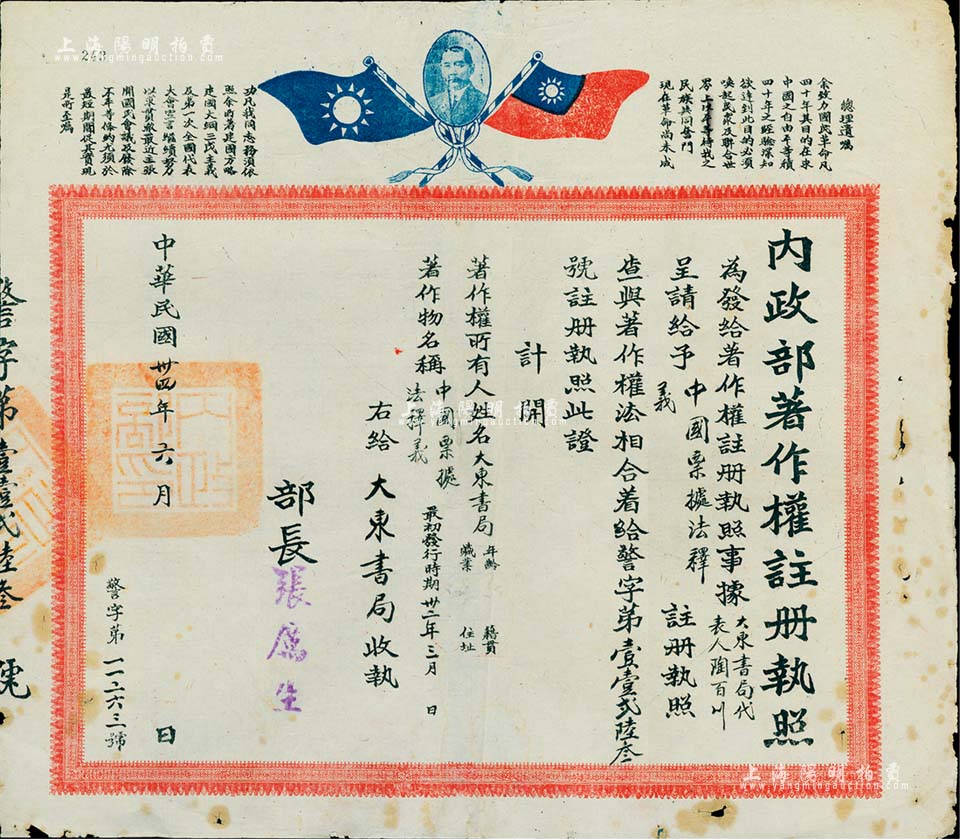 上海陽明拍賣
www.yangmingauction.com
243
總理遺囑
余致力國民革命凡
四十年其目的在求
中國之自由平等積
四十年之經驗深知
欲達到此目的必須
喚起民眾及聯合世
界上以平等待我之
民族共同奮鬥
現在革命尚未成
功凡我同志務須依
照余所著建國方略
建國大綱三民主義
及第一次全國代表
大會宣言繼續努力
以求貫徹最近主張
開國民會議及廢除
不平等條約尤須於
最短期間促其實現
是所至囑
內政部著作權註冊執照
為發給著作權註冊執照事據大東書局代表人陶百川
呈請給予中國票據法釋義註冊執照
查與著作權法相合着給警字第壹壹貳陸叁
號註冊執照此證
計開
著作權所有人姓名大東書局 年齡 職業 籍貫 住址
著作物名稱中國票據法釋義 最初發行時期卅二年三月 日
右給 大東書局收執
部長張厲生
中華民國卅四年六月 日
警字第一一二六三號
警字第壹壹貳陸叁號
上海陽明拍賣
www.yangmingauction.com
上海陽明拍賣
www.yangmingauction.com